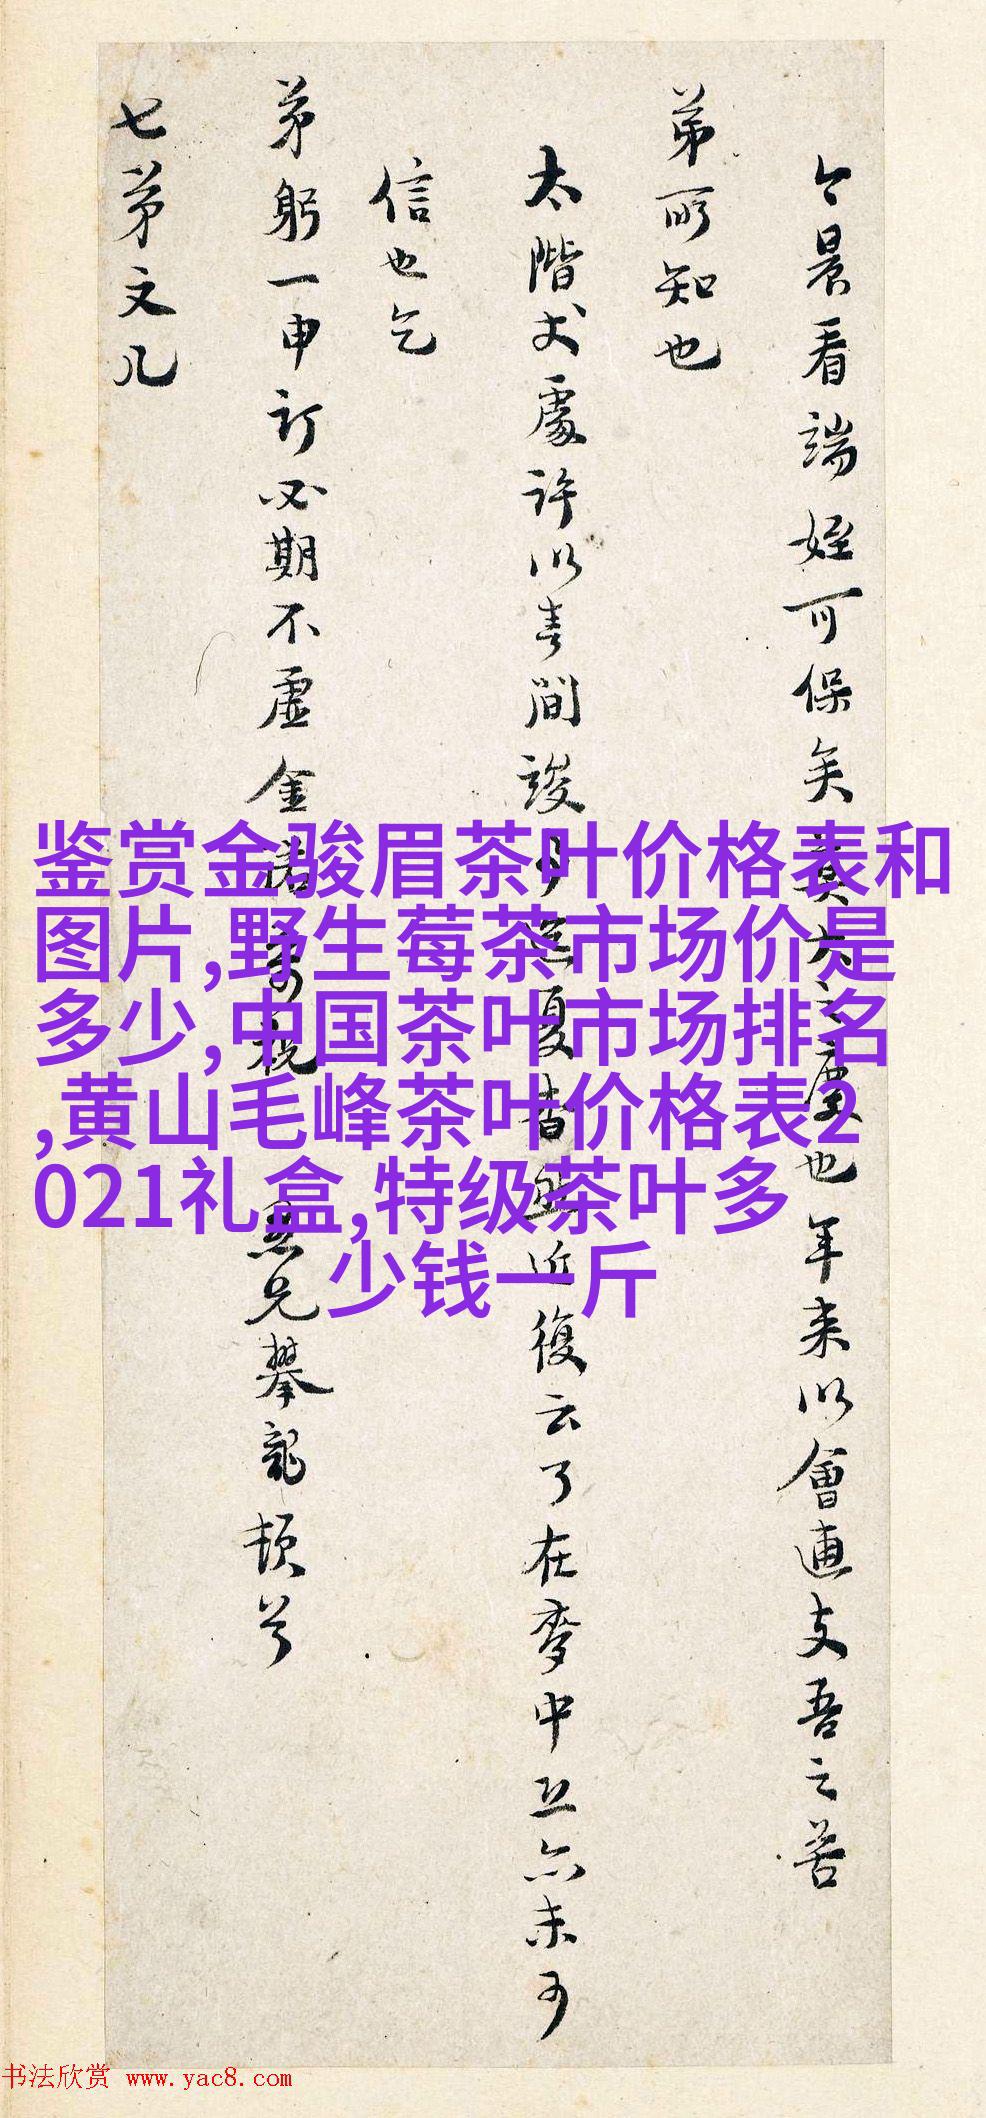 今晨看端姪可保矣莫大之慶也年来以會逋支吾之苦
弟所知也
太階丈處許以春間設
夏昔
近復云了在麥中立亦未可
信也乞
弟躬一申訂必期不虚金諾
兄攀龍頓首
七弟文几
鉴赏金骏眉茶叶价格表和
图片,野生莓茶市场价是
多少,中国茶叶市场排名
,黄山毛峰茶叶价格表2
021礼盒,特级茶叶多
少钱一斤
书法欣赏 www.yac8.com